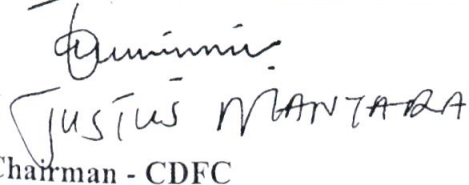 JUSTUS MANTARA
Chairman - CDFC